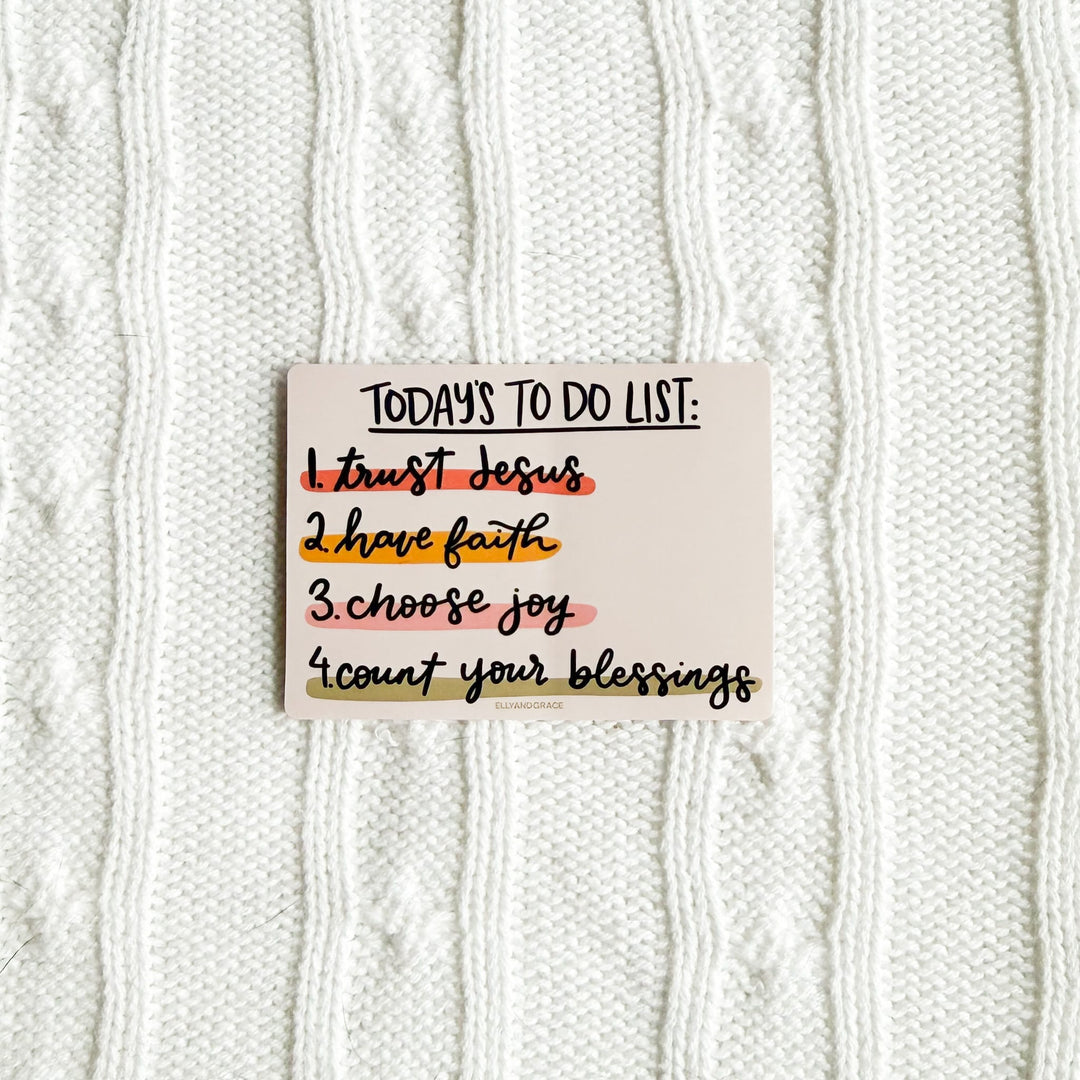 TODAY'S TO DO LIST:
1. trust Jesus
2. have faith
3. choose joy
4. count your blessings
ELLYANDGRACE